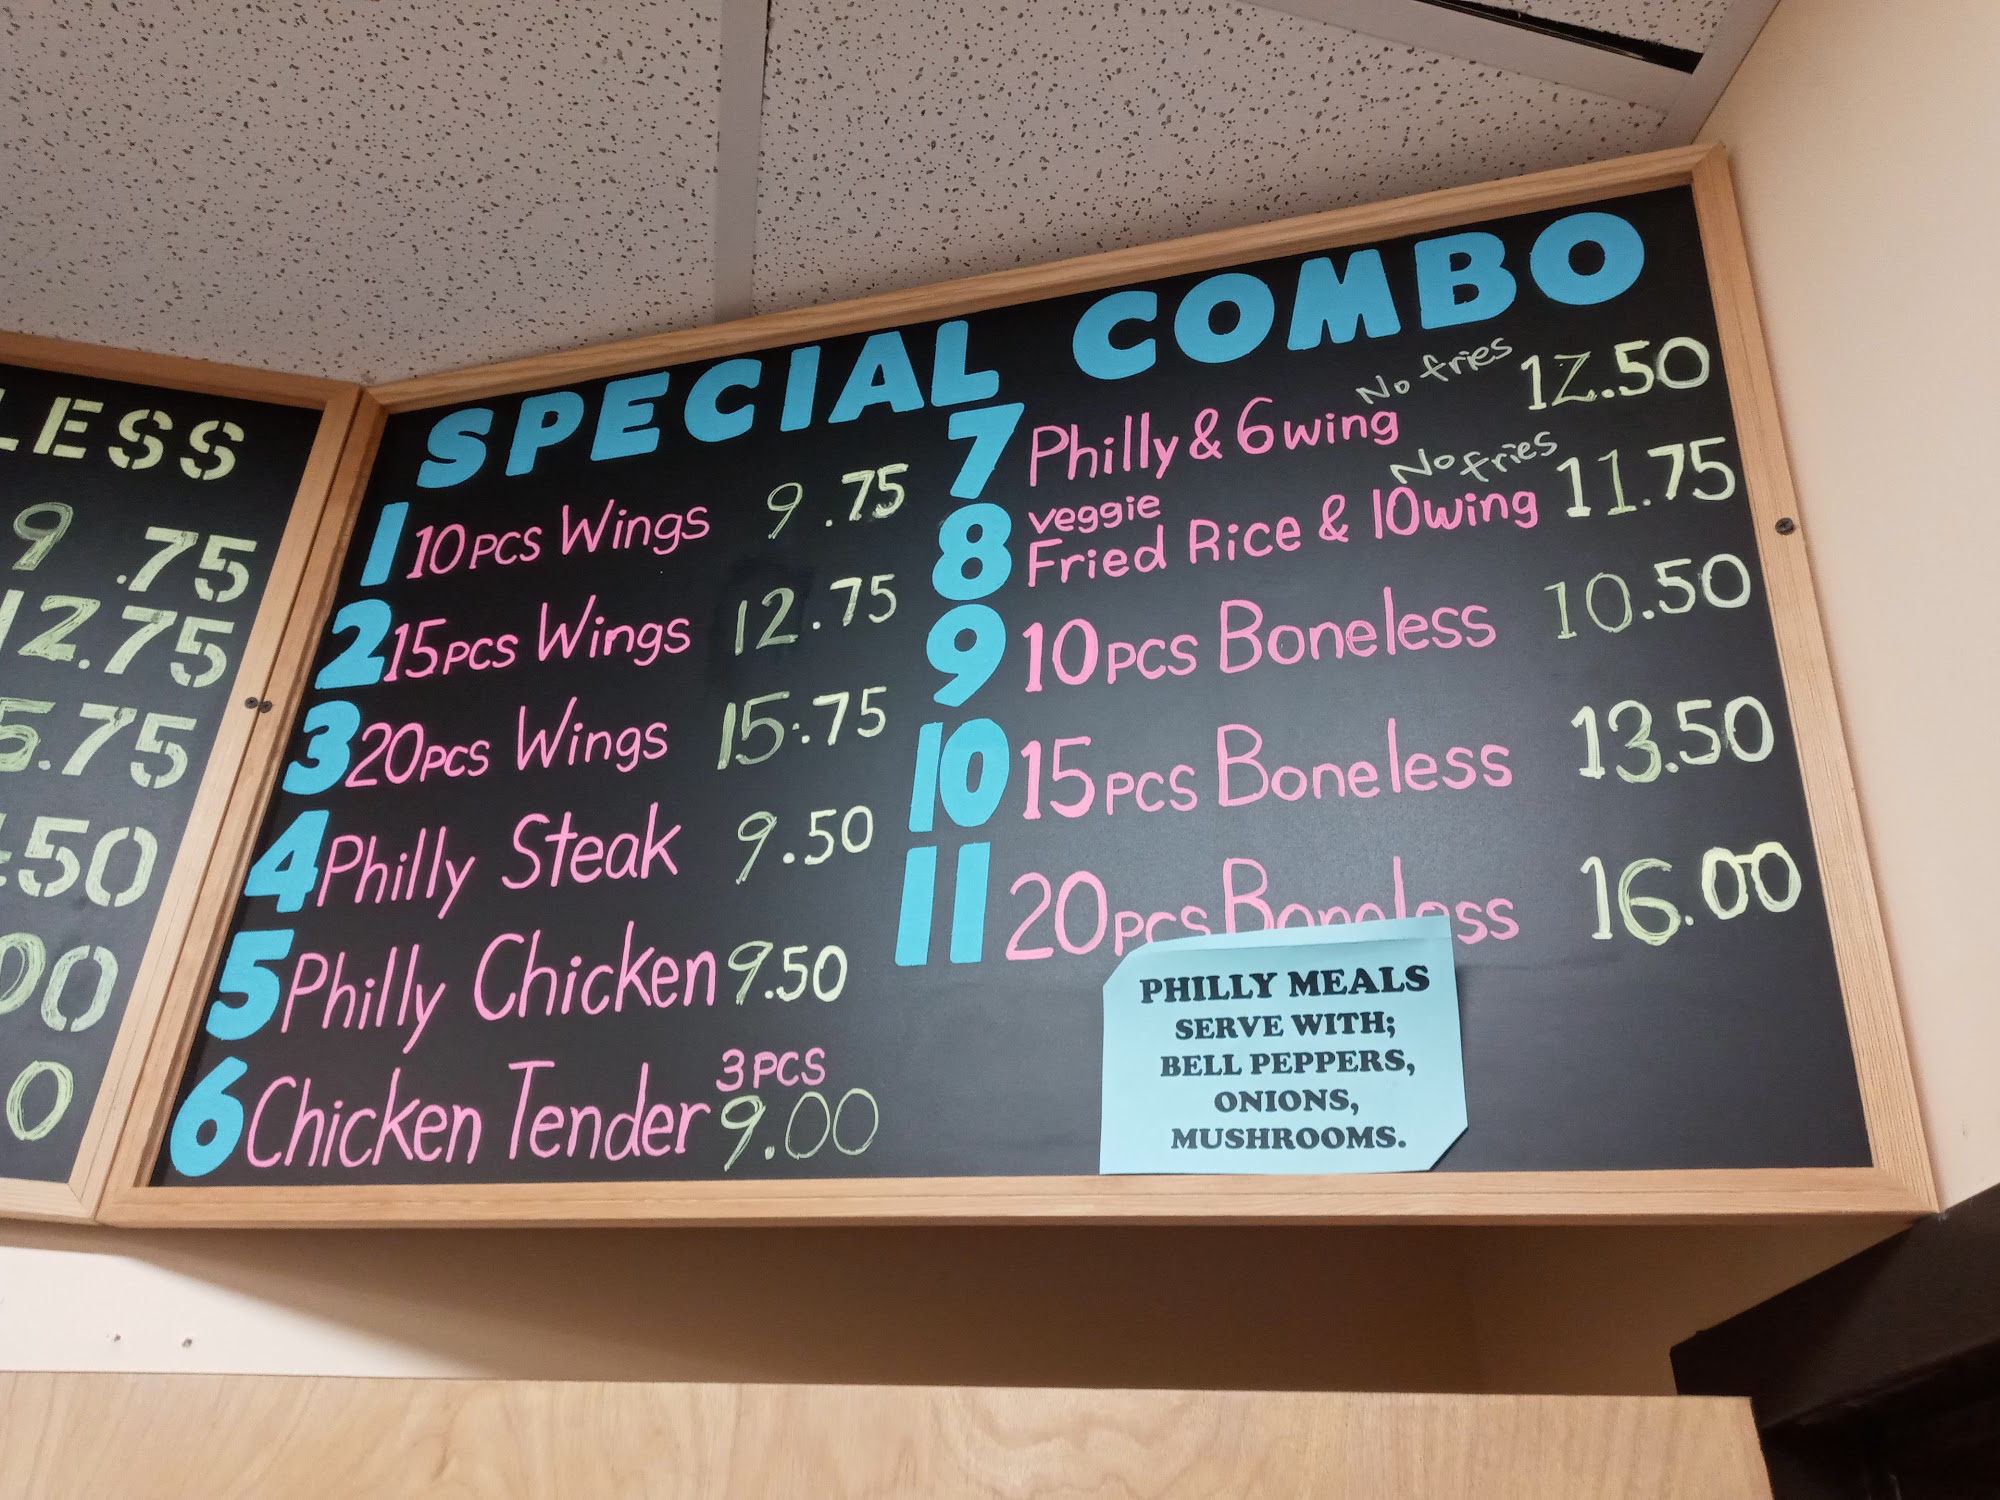 LESS
9.75
12.75
5.75
50
00
0
SPECIAL COMBO
1 10PCS Wings 9.75
2 15PCS Wings 12.75
3 20PCS Wings 15.75
4 Philly Steak 9.50
5 Philly Chicken 9.50
3PCS
6 Chicken Tender 9.00
No fries
7 Philly & 6wing 12.50
No fries
veggie
8 Fried Rice & 10wing 11.75
9 10PCS Boneless 10.50
10 15PCS Boneless 13.50
11 20PCS Boneless 16.00
PHILLY MEALS
SERVE WITH;
BELL PEPPERS,
ONIONS,
MUSHROOMS.